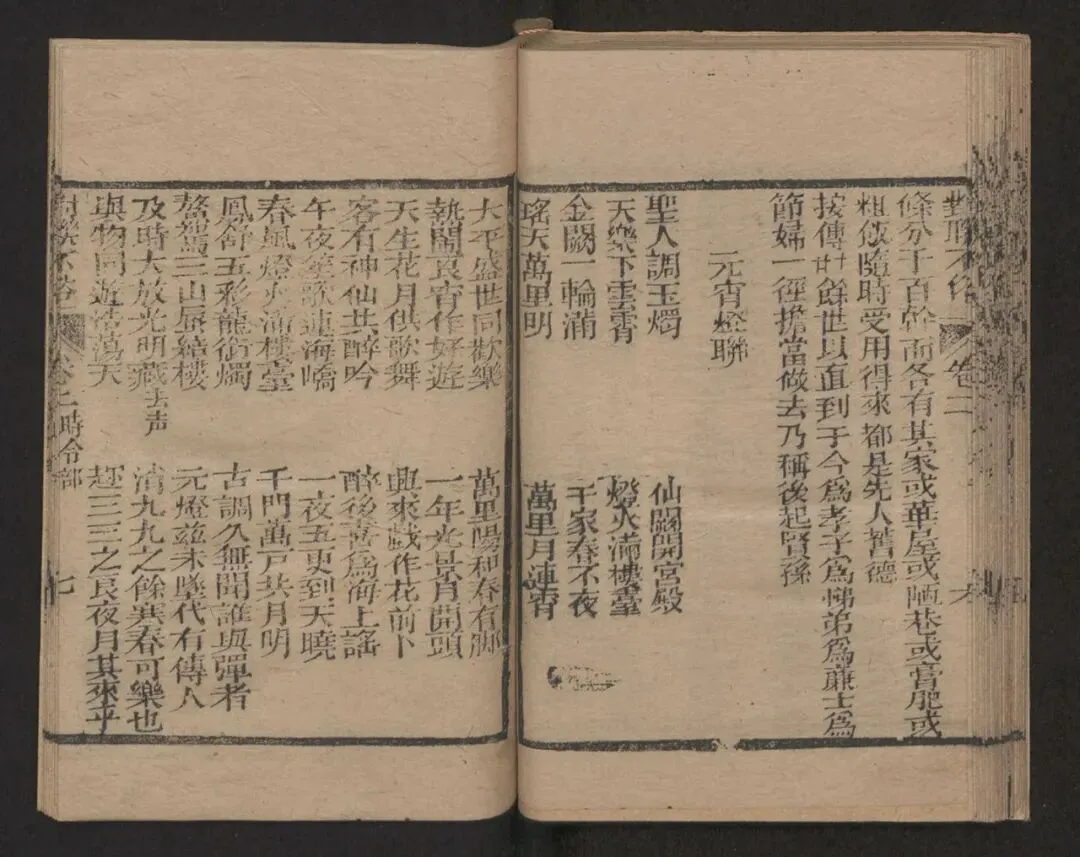 對聯不俗 卷二 六
條分千百幹而各有其家或華屋或陋巷或膏肥或
粗飯隨時受用得來都是先人舊德
按傳廿餘世以直到于今為孝子為悌弟為廉士為
節婦一徑擔當做去乃稱後起賢孫
元宵燈聯
聖人調玉燭 仙闕開宮殿
天樂下雲霄 燈火滿樓臺
金闕一輪滿 千家春不夜
瑤天萬里明 萬里月連宵
太平盛世同歡樂 萬里陽和春有腳
熱鬧良宵作好遊 一年光景月開頭
天生花月供歌舞 興來戲作花前卜
客有神仙共醉吟 醉後喜為海上謠
午夜笙歌連海嶠 一夜五更到天曉
春風燈火滿樓臺 千門萬戶共月明
鳳舒五彩龍銜燭 古調久無聞誰與彈者
鰲駕三山蜃結樓 元燈玆未墜代有傳人
及時大放光明藏去声 消九九之餘寒春可樂也
與物同遊浩蕩天 趂三三之良夜月其來乎
對聯不俗 卷二時令部 七